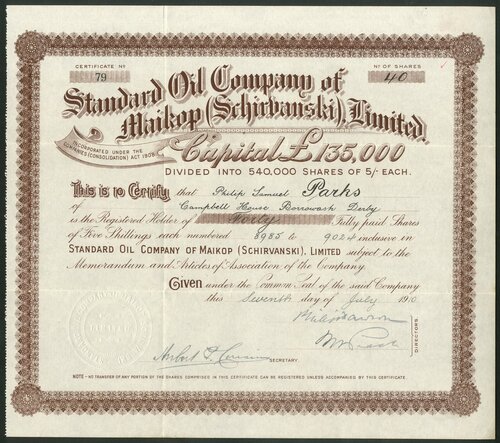 CERTIFICATE Nº
79
Nº OF SHARES
40
Standard Oil Company of
Maikop (Schirvanski), Limited.
INCORPORATED UNDER THE
COMPANIES (CONSOLIDATION) ACT 1908.
Capital £135,000
DIVIDED INTO 540,000 SHARES OF 5/- EACH.
This is to Certify that Philip Samuel Parks
of Campbell House Borrowash Derby
is the Registered Holder of Forty Fully paid Shares
of Five Shillings each numbered 8985 to 9024 inclusive in
STANDARD OIL COMPANY OF MAIKOP (SCHIRVANSKI), LIMITED subject to the
Memorandum and Articles of Association of the Company
Given under the Common Seal of the said Company
this Seventh day of July 1910
DIRECTORS.
SECRETARY.
NOTE - NO TRANSFER OF ANY PORTION OF THE SHARES COMPRISED IN THIS CERTIFICATE CAN BE REGISTERED UNLESS ACCOMPANIED BY THIS CERTIFICATE.